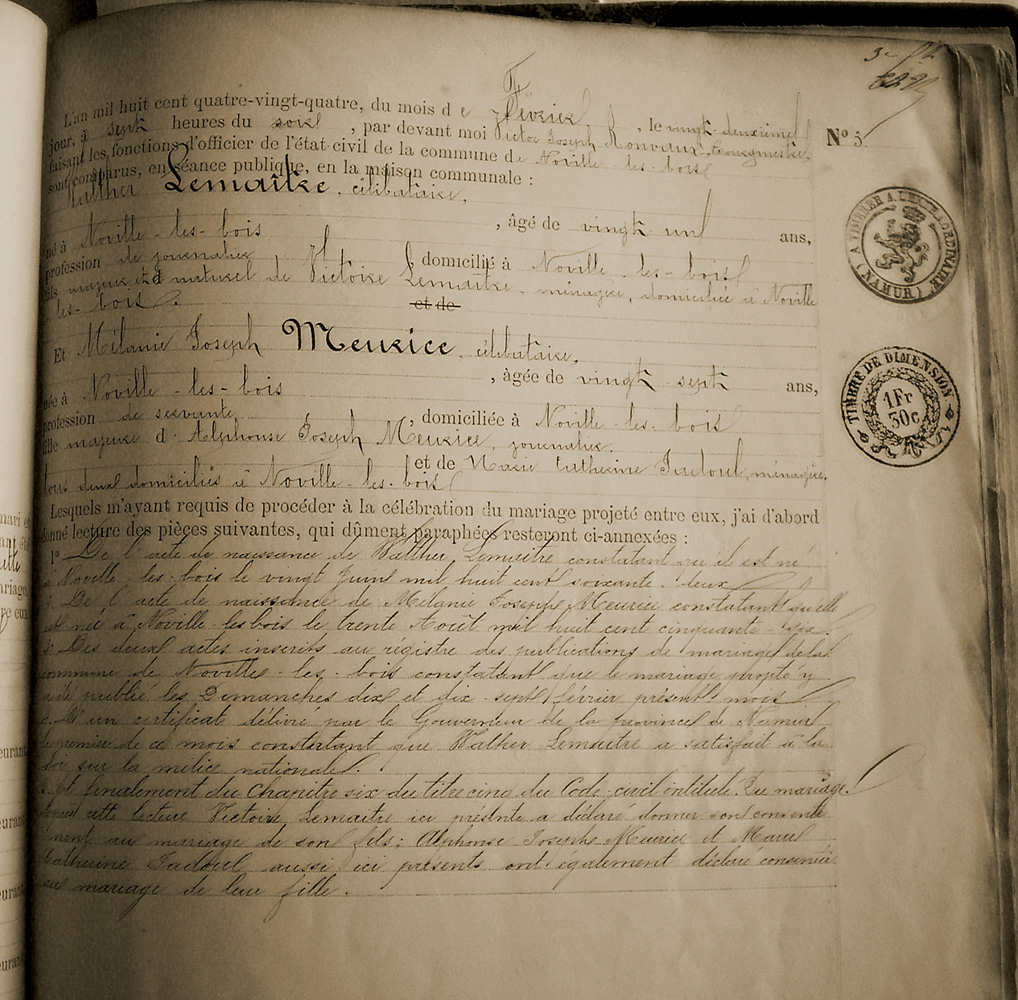 3e
L'an mil huit cent quatre-vingt-quatre, du mois d e Février, le vingt-deuxième
jour, à sept heures du soir, par devant moi Victor Joseph Ronvaux, Bourgmestre, Nº 5.
faisant les fonctions d'officier de l'état-civil de la commune de Noville-les-bois
sont comparus, en séance publique, en la maison communale :
Walther Lemaître, célibataire,
né à Noville-les-bois, âgé de vingt un ans,
profession de journalier, domicilié à Noville-les-bois
fils majeur et naturel de Victoire Lemaître, ménagère, domiciliée à Noville
les-bois.
et de
Et Mélanie Joseph Meurice, célibataire,
née à Noville-les-bois, âgée de vingt sept ans,
profession de servante, domiciliée à Noville-les-bois
fille majeure d' Alphonse Joseph Meurice, journalier,
et de Marie Catherine Fadoul, ménagère,
tous deux domiciliés à Noville-les-bois
Lesquels m'ayant requis de procéder à la célébration du mariage projeté entre eux, j'ai d'abord
donné lecture des pièces suivantes, qui dûment paraphées resteront ci-annexées :
1º De l'acte de naissance de Walther Lemaître constatant qu'il est né
à Noville-les-bois le vingt Juin mil huit cent soixante-deux
2º De l'acte de naissance de Mélanie Josephe Meurice constatant qu'elle
est née à Noville-les bois le trente Août mil huit cent cinquante-six.
3º Des deux actes inscrits au régistre des publications de mariage de la
commune de Noville-les-bois constatant que le mariage projeté y
a été publié les Dimanches dix et dix-sept février présent mois
4º D'un certificat délivré par le Gouverneur de la province de Namur
le premier de ce mois constatant que Walther Lemaître a satisfait à la
loi sur la milice nationale.
5º Et finalement du Chapitre six du titre cinq du Code civil intitulé: Du mariage.
Après cette lecture Victoire Lemaître ici présente a déclaré donner son consente
ment au mariage de son fils; Alphonse Josephe Meurice et Marie
Catherine Fadoul aussi ici présents ont également déclaré consentir
au mariage de leur fille.
A TIMBRER A L'EXTRAORDINAIRE (NAMUR)
TIMBRE DE DIMENSION
1 Fr
30 c